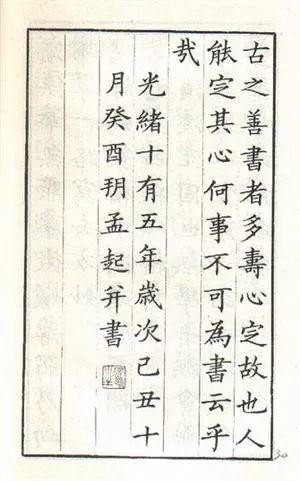 古之善書者多壽心定故也人
能定其心何事不可為書云乎
哉
光緒十有五年歲次己丑十
月癸酉玥孟起幷書
30